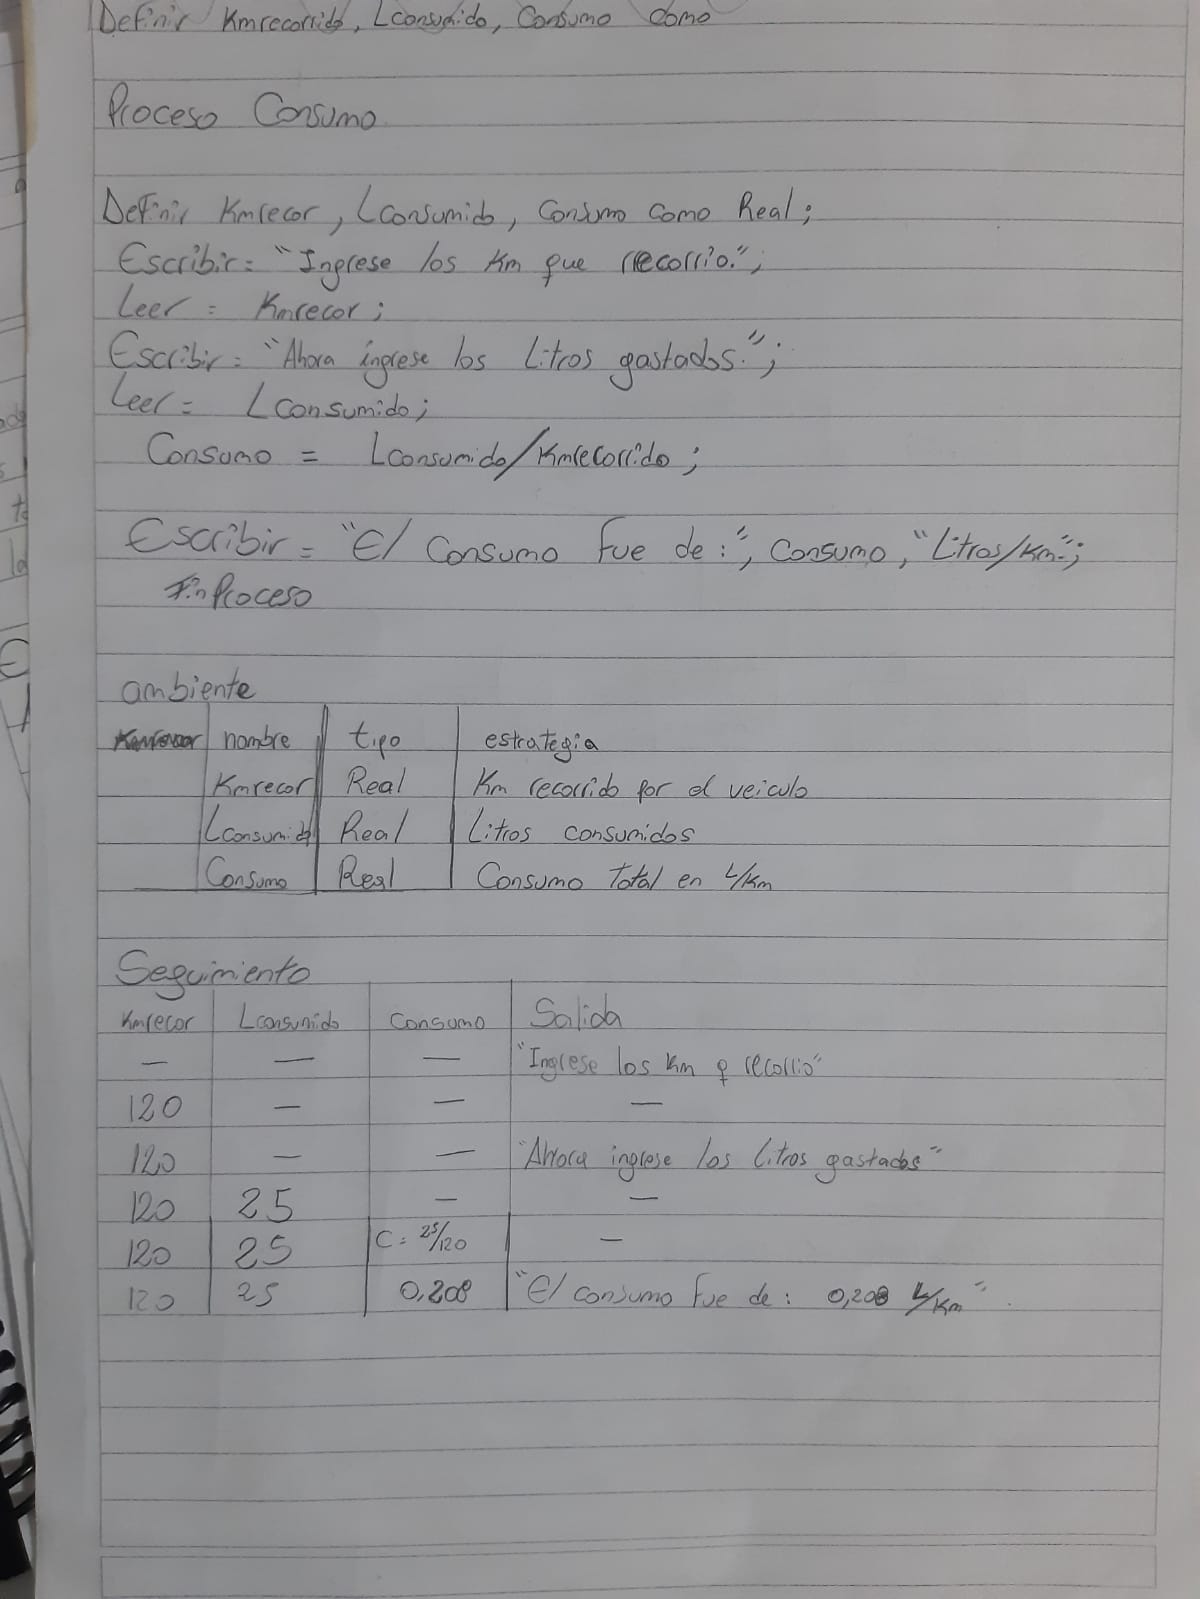 Definir Kmrecorrido, Lconsumido, Consumo como
Proceso Consumo
Definir Kmrecor, Lconsumido, Consumo como Real;
Escribir = "Ingrese los Km que recorrio.";
Leer = Kmrecor;
Escribir = "Ahora ingrese los Litros gastados.";
Leer = Lconsumido;
Consumo = Lconsumido/Kmrecorrido;
Escribir = "El Consumo fue de:", Consumo, "Litros/Km";
FinProceso
ambiente
nombre tipo estrategia
Kmrecor Real Km recorrido por el veiculo
Lconsumido Real Litros consumidos
Consumo Real Consumo Total en L/Km
Seguimiento
Kmrecor Lconsumido Consumo Salida
— — — "Ingrese los Km q recorrio"
120 — — —
120 — — "Ahora ingrese los Litros gastados"
120 25 — —
120 25 C = 25/120 —
120 25 0,208 "El consumo fue de: 0,208 L/Km".